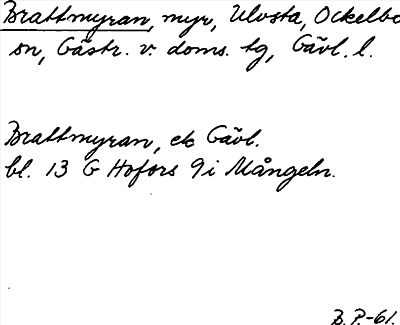 Brattmyran, myr, Ulvsta, Ockelbo
sn, Gästr. v. doms. tg, Gävl. l.
Brattmyran, ek Gävl.
bl. 13 G Hofors 9i Mångeln.
B.P.-61.